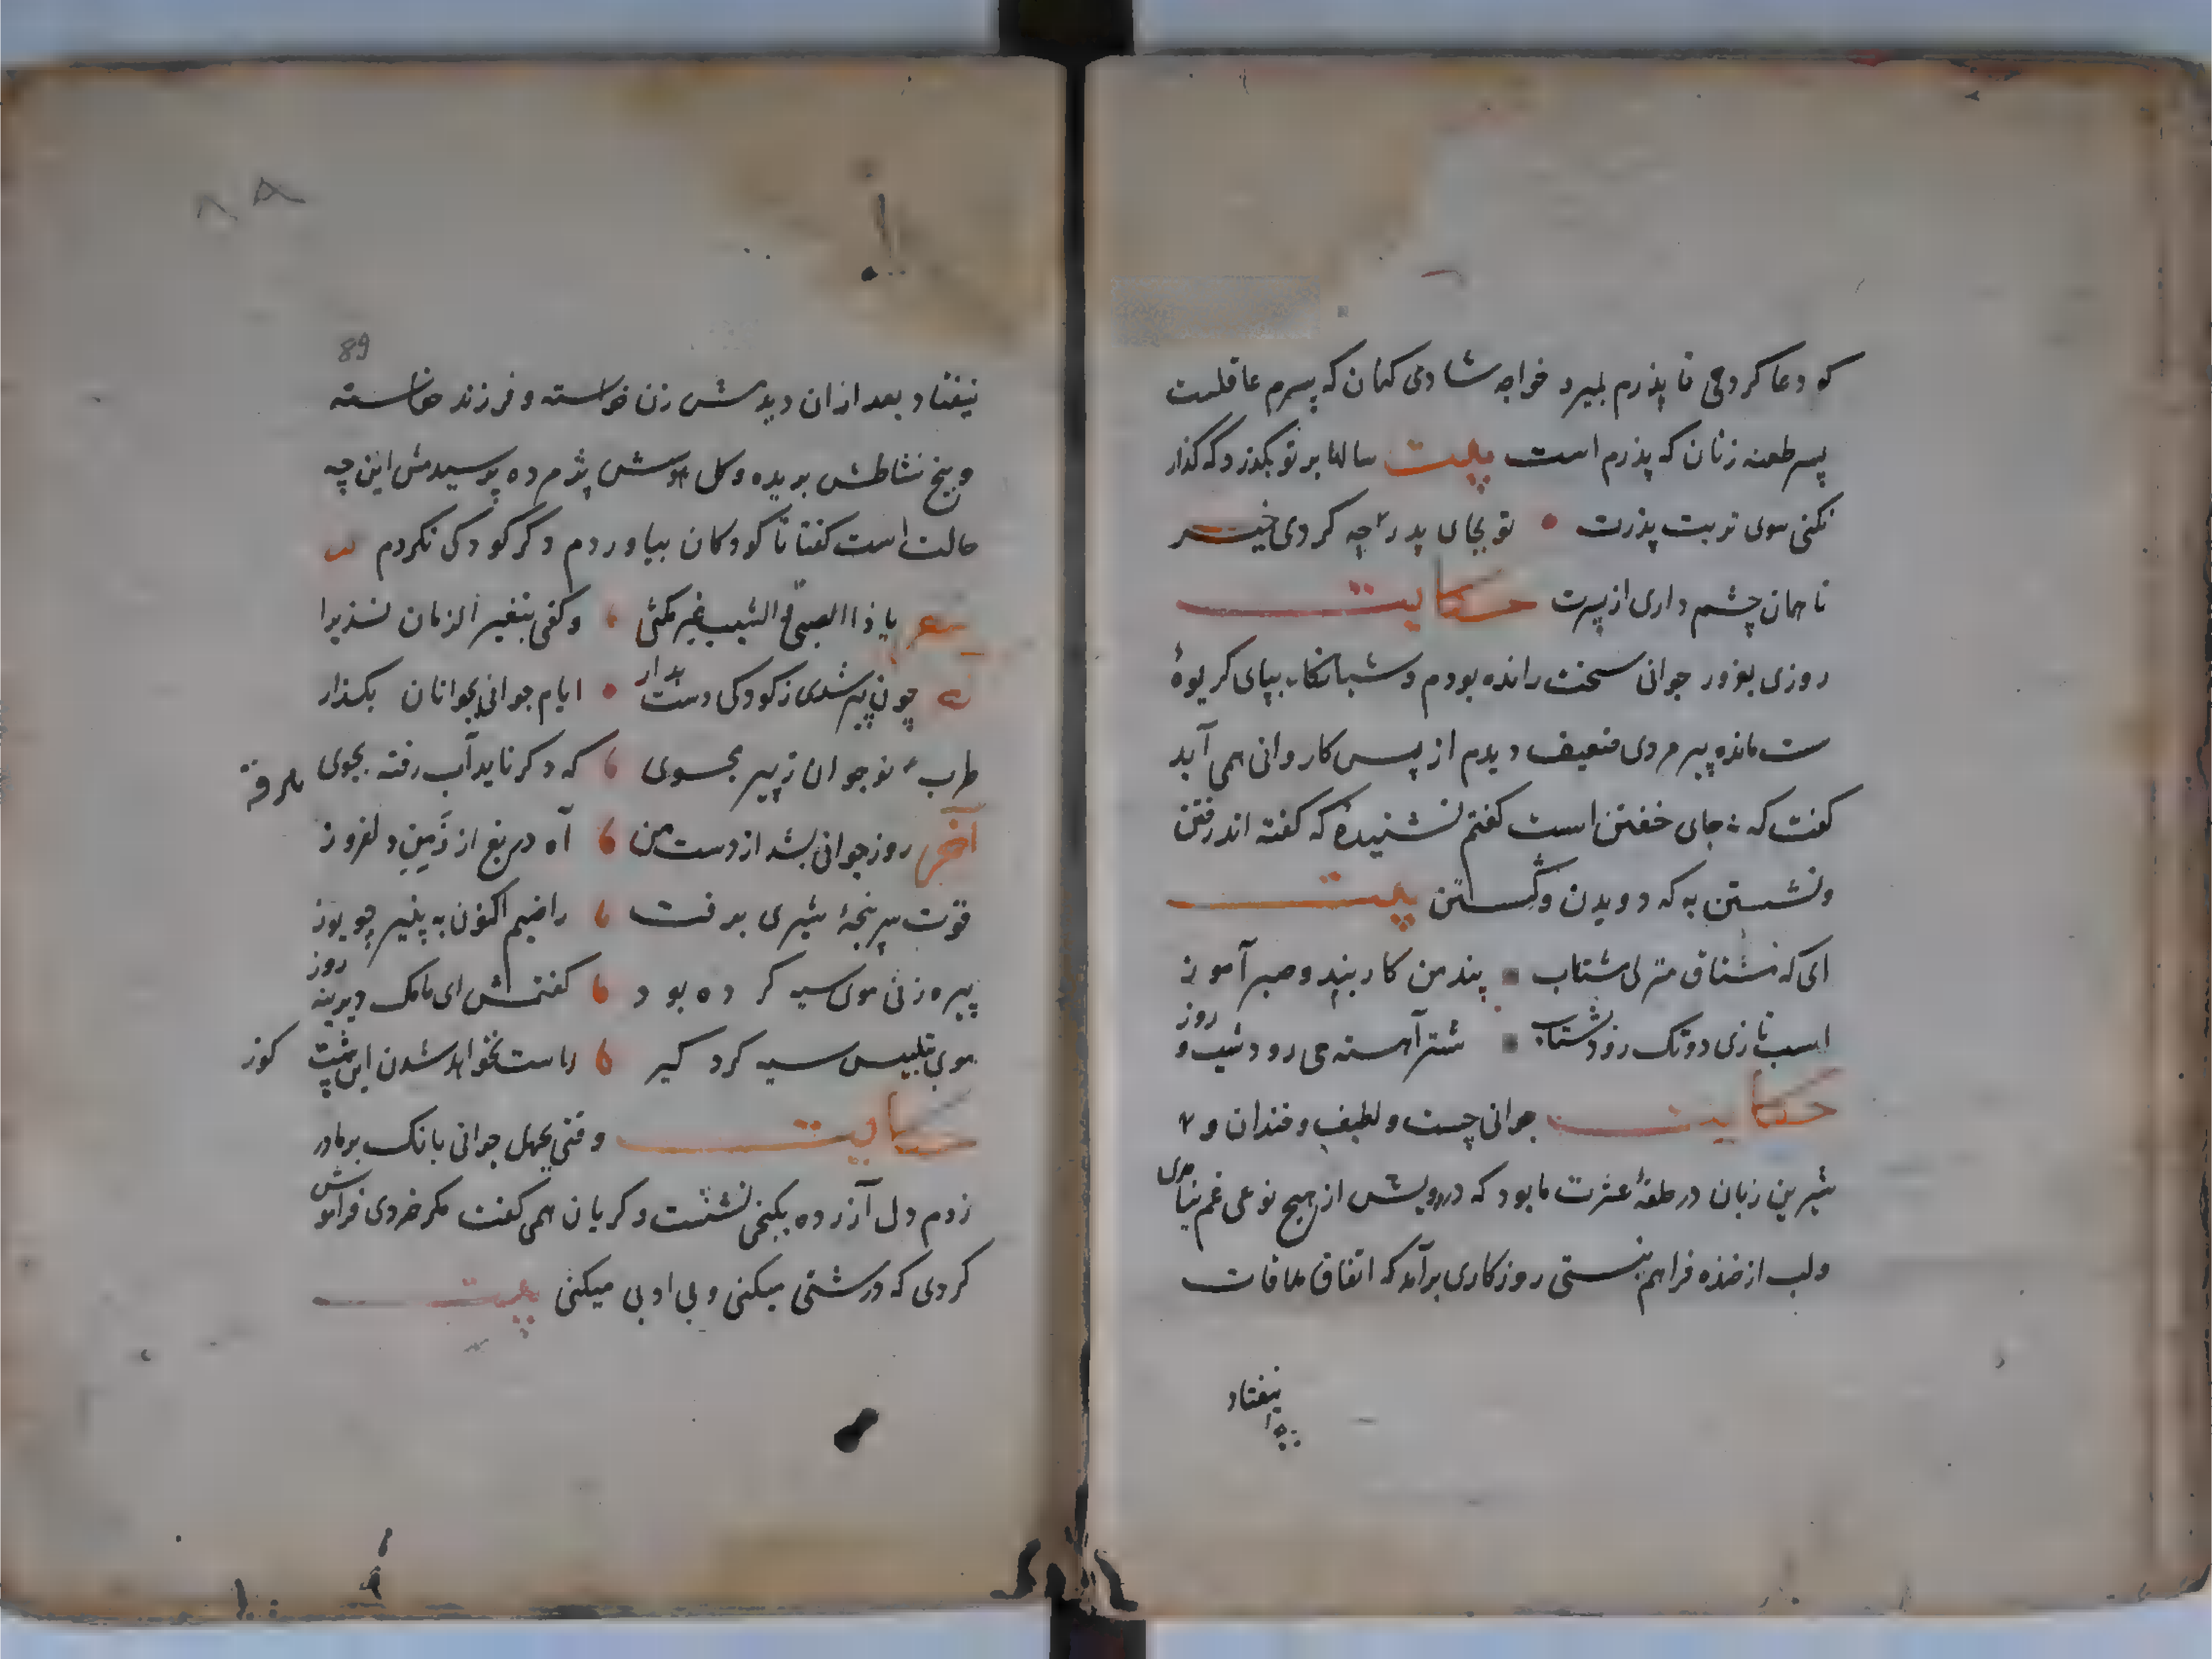 که دعا کردمی تا پذرم بمیرد خواجه شادی کنان که پسرم عاقلست
پسر طعنه زنان که پذرم است بیت سالها بر تو بگذرد که گذار
نکنی سوی تربت پذرت • تو بجای پدر چه کردی خیر
تا همان چشم داری از پسرت حکایت
روزی بغرور جوانی سخت رانده بودم و شبانگاه بپای کریوهٔ
ست مانده پیر مردی ضعیف دیدم از پس کاروانی همی آید
کفت که نه جای خفتن است کفتم نشنیدهٔ که کفته اند رفتن
و نشستن به که دویدن و گسستن بیت
ای که مشتاق منزلی مشتاب پند من کار بند و صبر آموز
اسب تازی دو تک رود بشتاب شتر آهسته می رود شب و روز
حکایت جوانی چست و لطیف و خندان و
شیرین زبان در حلقهٔ عشرت ما بود که در دویش از هیچ نوعی غم نیامدی
و لب از خنده فراهم نبستی روزکاری برآمد که اتفاق ملاقات
نیفتاد
89
نیفتاد بعد از ان دیدمش زن خواسته و فرزند خاسته
و بیخ نشاطش بریده و کل هوسش پژمرده پرسیدمش این چه
حالت است کفتا تا کودکان بیاوردم دکر کودکی نکردم
شعر یا ذا الصبی و الشیب غیر مکنی وکفی بتغیر الزمان نذیرا
چون پیر شدی ز کودکی دست بدار • ایام جوانی بجوانان بکذار
طرب نوجوان ز پیر مجوی که دکر ناید آب رفته بجوی
آخر روز جوانی بشد از دست من آه دریغ از زمین دلفروز
قوت سر پنجهٔ شیری برفت راضیم اکنون به پنیر چو یوز
پیره زنی موی سیه کرده بود کفتمش ای مامک دیرینه روز
موی بتلبیس سیه کرد گیر راست نخواهد شدن این پشت کوز
حکایت وقتی بجهل جوانی بانک بر مادر
زدم دل آزرده بکنجی نشست و کریان همی کفت مکر خردی فراموش
کردی که درشتی میکنی و بی ادبی میکنی بیت